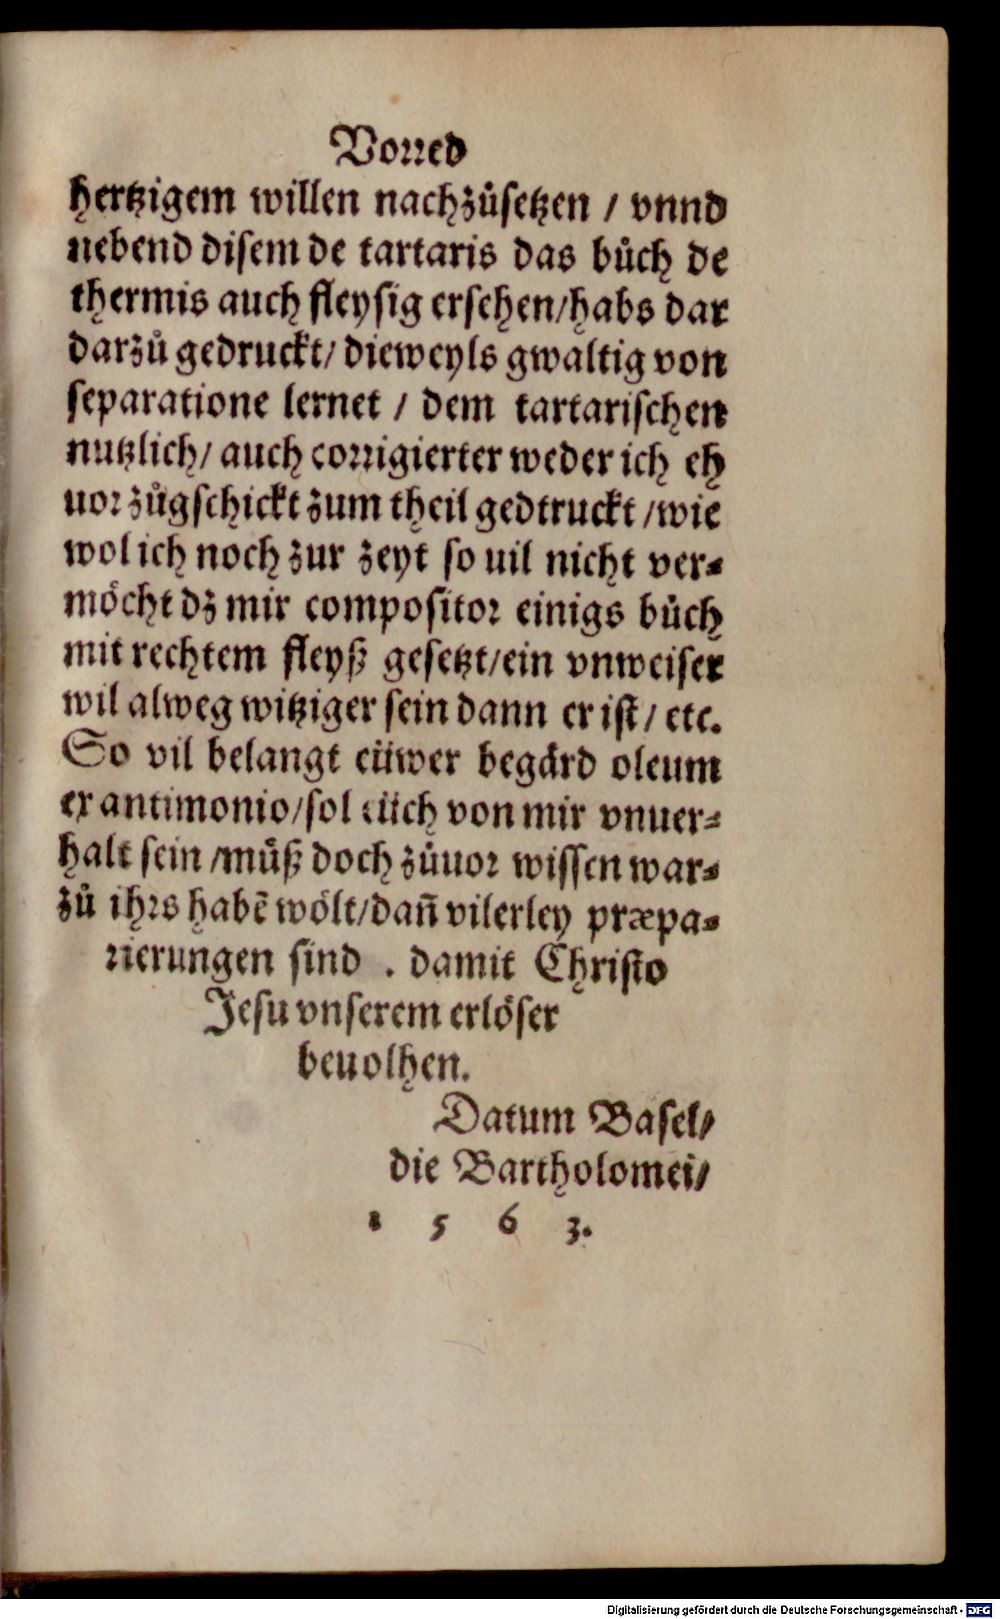 Vorred
hertzigem willen nachzůsetzen / vnnd
nebend disem de tartaris das bůch de
thermis auch fleysig ersehen/habs dar
darzů gedruckt/ dieweyls gwaltig von
separatione lernet / dem tartarischen
nutzlich/ auch corrigierter weder ich eh
uor zůgschickt zum theil gedtruckt /wie
wol ich noch zur zeyt so uil nicht ver⸗
möcht dz mir compositor einigs bůch
mit rechtem fleyß gesetzt/ein vnweiser
wil alweg witziger sein dann er ist/ etc.
So vil belangt eüwer begärd oleum
ex antimonio/sol eüch von mir vnuer⸗
halt sein /můß doch zůuor wissen war⸗
zů ihrs habē wölt/dañ vilerley præpa⸗
rierungen sind . damit Christo
Jesu vnserem erlöser
beuolhen.
Datum Basel/
die Bartholomei/
1 5 6 3.
Digitalisierung gefördert durch die Deutsche Forschungsgemeinschaft - DFG